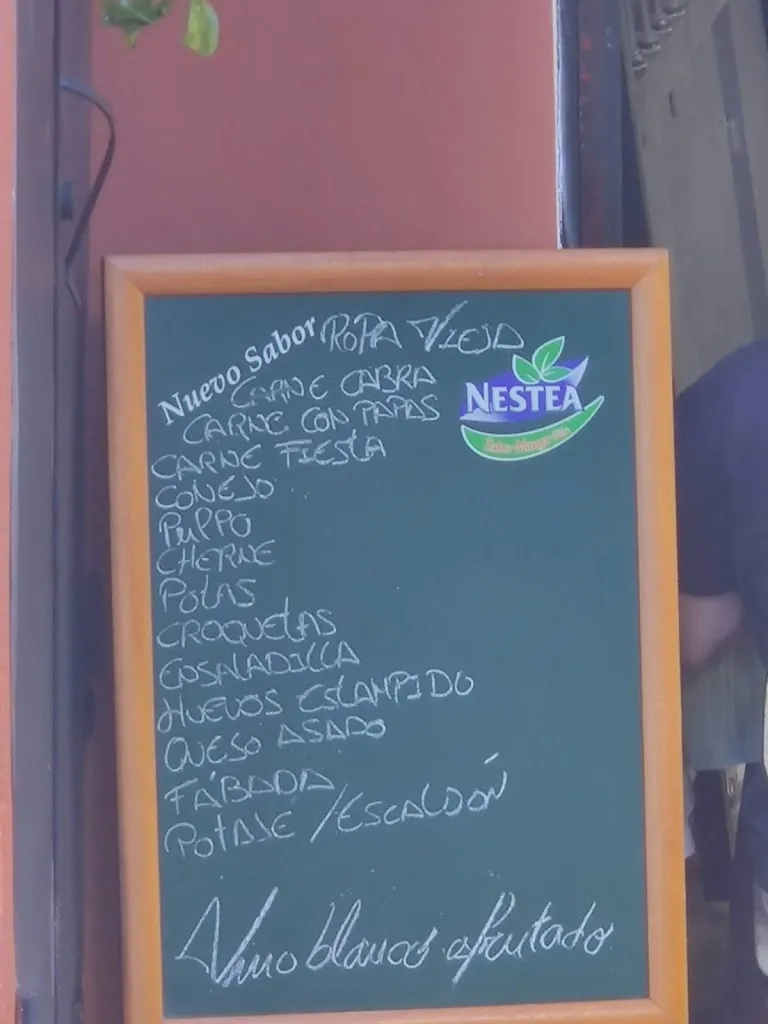 Nuevo Sabor
ROPA VIEJA
NESTEA
CARNE CABRA
CARNE CON PAPAS
CARNE FIESTA
CONEJO
PULPO
CHERNE
POTAS
CROQUETAS
ENSALADILLA
HUEVOS ESTAMPIDO
QUESO ASADO
FÁBADA
POTAJE / ESCALDÓN
Vino blanco afrutado